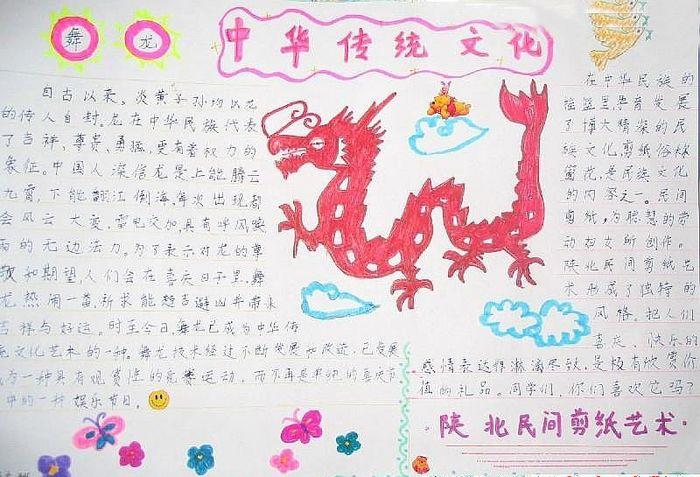 舞 龙
中华传统文化
自古以来，炎黄子孙均以龙
的传人自封。龙在中华民族代表
了吉祥、尊贵、勇猛，更有着权力的
象征。中国人深信龙是上能腾云
九霄，下能翻江倒海每次出现都
会风云大变，雷电交加，具有呼风唤
雨的无边法力。为了表示对龙的尊
敬和期望，人们会在喜庆日子里，舞
龙，热闹一番，祈求能趋吉避凶并带来
吉祥与好运。时至今日舞龙已成为中华传
统文化艺术的一种。舞龙技术经过不断发展和改造，已发展
为一种具有观赏性的竞赛运动，而不再是
中的一种娱乐节目。
在中华民族的
摇篮里孕育发展
了博大精深的民
族文化剪纸俗称
窗花是民族文化
的内容之一。民间
剪纸，为聪慧的劳
动妇女所创作。
陕北民间剪纸艺
术形成了独特的
风格。把人们
喜庆、快乐的
感情表达得淋漓尽致，是极有欣赏价
值的礼品。同学们，你们喜欢它吗？
陕北民间剪纸艺术